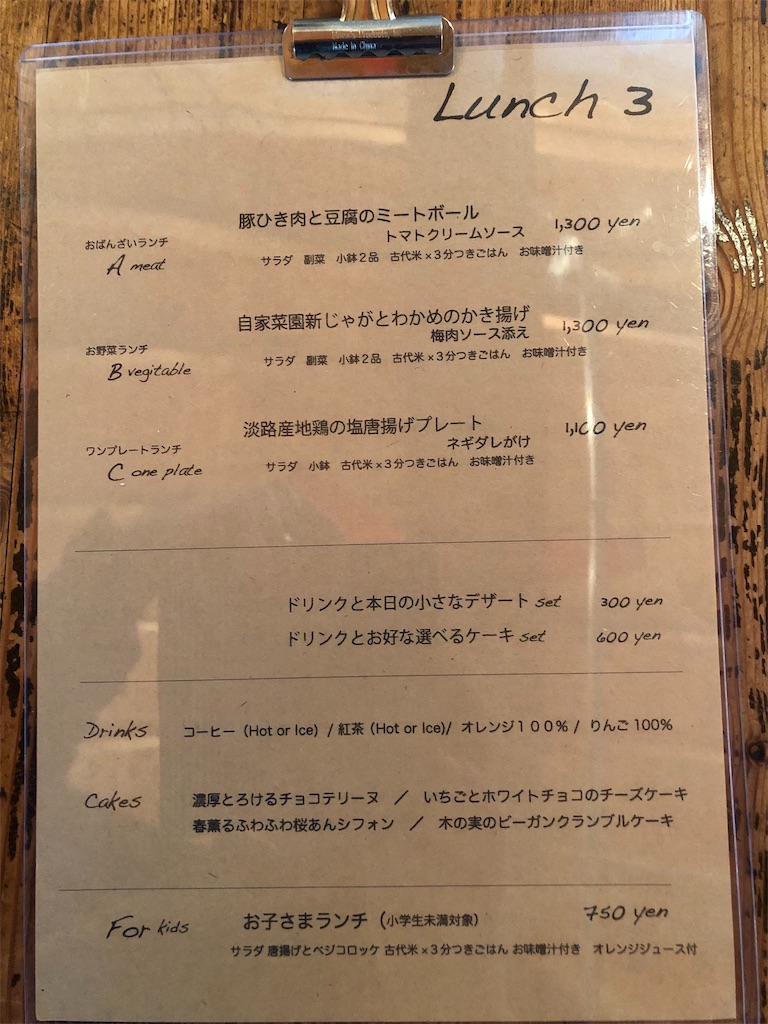 Made in China
Lunch 3
豚ひき肉と豆腐のミートボール
トマトクリームソース
1,300 yen
おばんざいランチ
A meat
サラダ 副菜 小鉢2品 古代米×3分つきごはん お味噌汁付き
自家菜園新じゃがとわかめのかき揚げ
梅肉ソース添え
1,300 yen
お野菜ランチ
B vegitable
サラダ 副菜 小鉢2品 古代米×3分つきごはん お味噌汁付き
淡路産地鶏の塩唐揚げプレート
ネギダレがけ
1,100 yen
ワンプレートランチ
C one plate
サラダ 小鉢 古代米×3分つきごはん お味噌汁付き
ドリンクと本日の小さなデザート set 300 yen
ドリンクとお好な選べるケーキ set 600 yen
Drinks コーヒー（Hot or Ice）/ 紅茶（Hot or Ice)/ オレンジ100% / りんご100%
Cakes 濃厚とろけるチョコテリーヌ ／ いちごとホワイトチョコのチーズケーキ
春薫るふわふわ桜あんシフォン ／ 木の実のビーガンクランブルケーキ
For kids お子さまランチ（小学生未満対象） 750 yen
サラダ 唐揚げとベジコロッケ 古代米×3分つきごはん お味噌汁付き オレンジジュース付